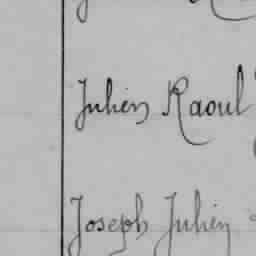 Julien Raoul
Joseph Julien